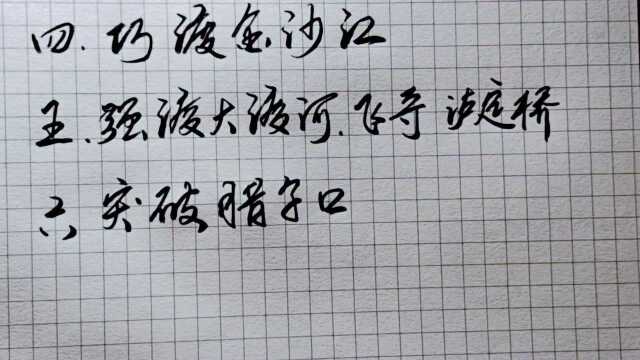 四.巧渡金沙江
五.强渡大渡河.飞夺泸定桥
六、突破腊子口